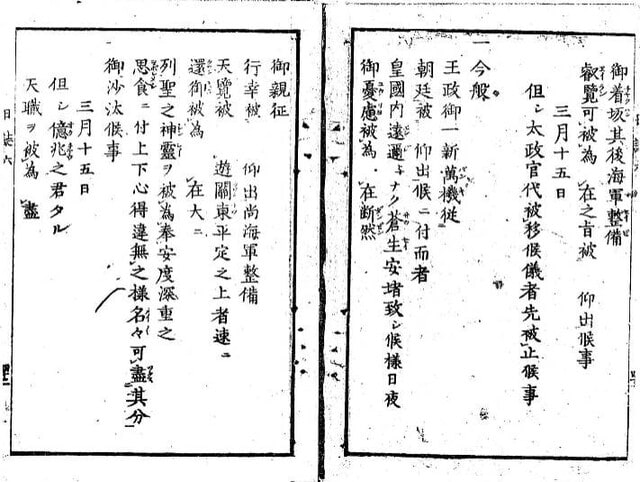 御着坂其後海軍整備
叡覧可被為 在之旨被 仰出候事
三月十五日
但シ太政官代被移候儀者先被止候事
一今般
王政御一新萬機従
朝廷被 仰出候ニ付而者
皇國内遠邇トナク蒼生安堵致シ候様日夜
御憂慮被為 在断然
御親征
行幸被 仰出尚海軍整備
天覧被 遊關東平定之上者速ニ
還御被為 在大ニ
列聖之神靈ヲ被為奉安度深重之
思食ニ付上下心得違無之様名々可盡其分
御沙汰候事
三月十五日
但シ億兆之君タル
天職ヲ被為 盡
日誌六